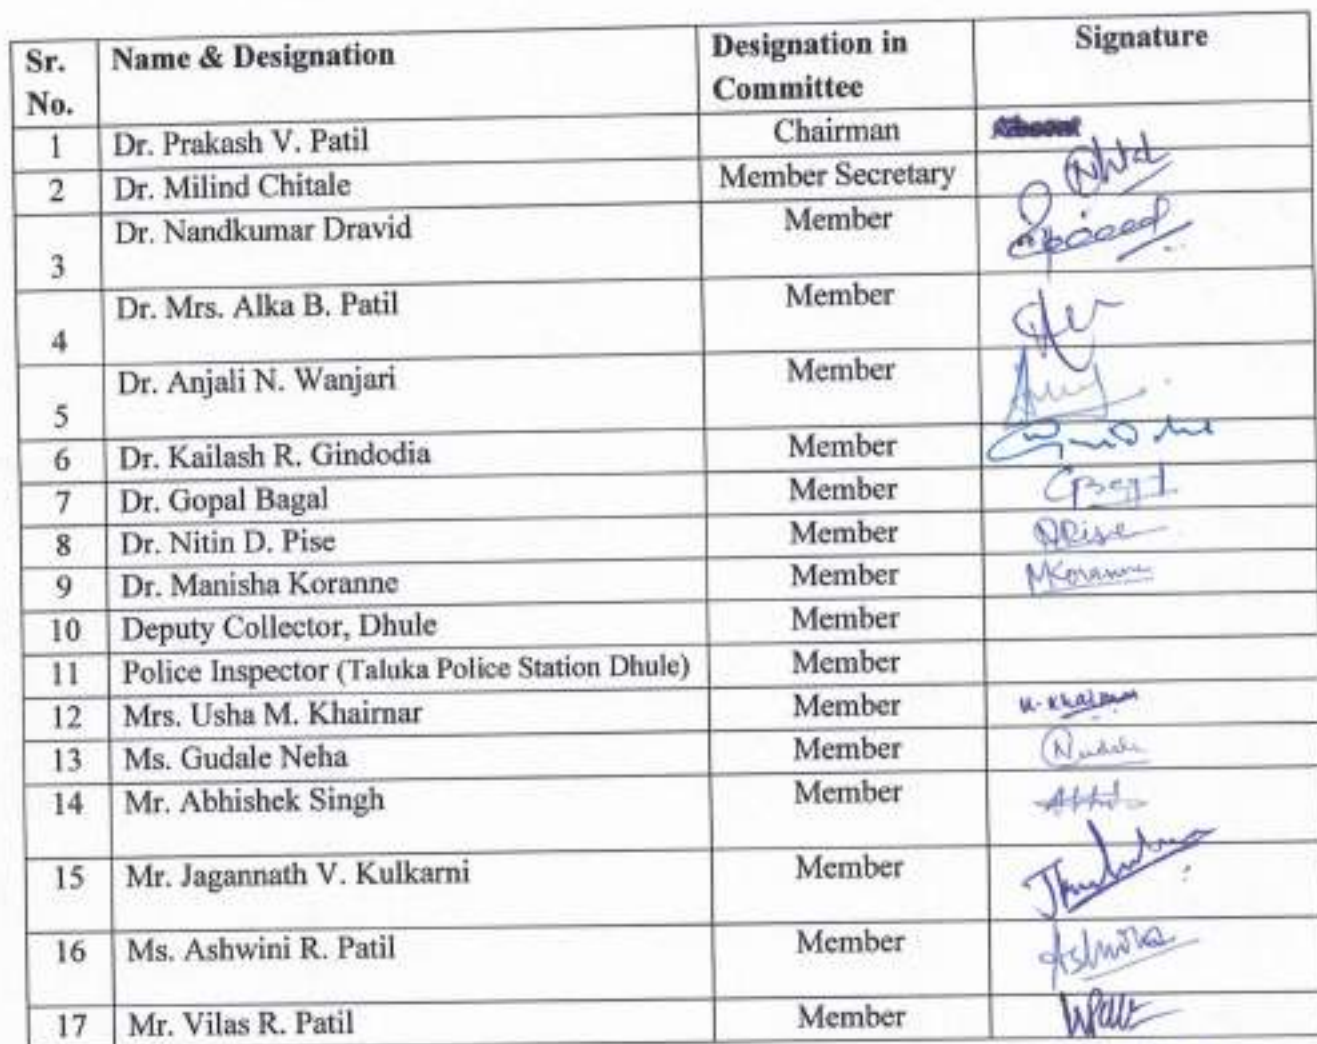 Sr. No. Name & Designation Designation in Committee Signature
1 Dr. Prakash V. Patil Chairman
2 Dr. Milind Chitale Member Secretary
3 Dr. Nandkumar Dravid Member
4 Dr. Mrs. Alka B. Patil Member
5 Dr. Anjali N. Wanjari Member
6 Dr. Kailash R. Gindodia Member
7 Dr. Gopal Bagal Member
8 Dr. Nitin D. Pise Member
9 Dr. Manisha Koranne Member MKoranne
10 Deputy Collector, Dhule Member
11 Police Inspector (Taluka Police Station Dhule) Member
12 Mrs. Usha M. Khairnar Member
13 Ms. Gudale Neha Member
14 Mr. Abhishek Singh Member
15 Mr. Jagannath V. Kulkarni Member
16 Ms. Ashwini R. Patil Member
17 Mr. Vilas R. Patil Member